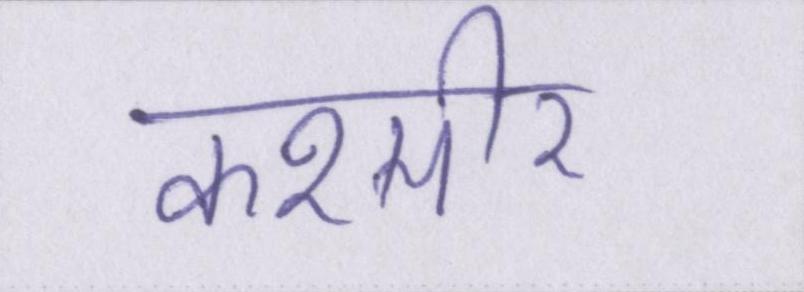 कश्मीर